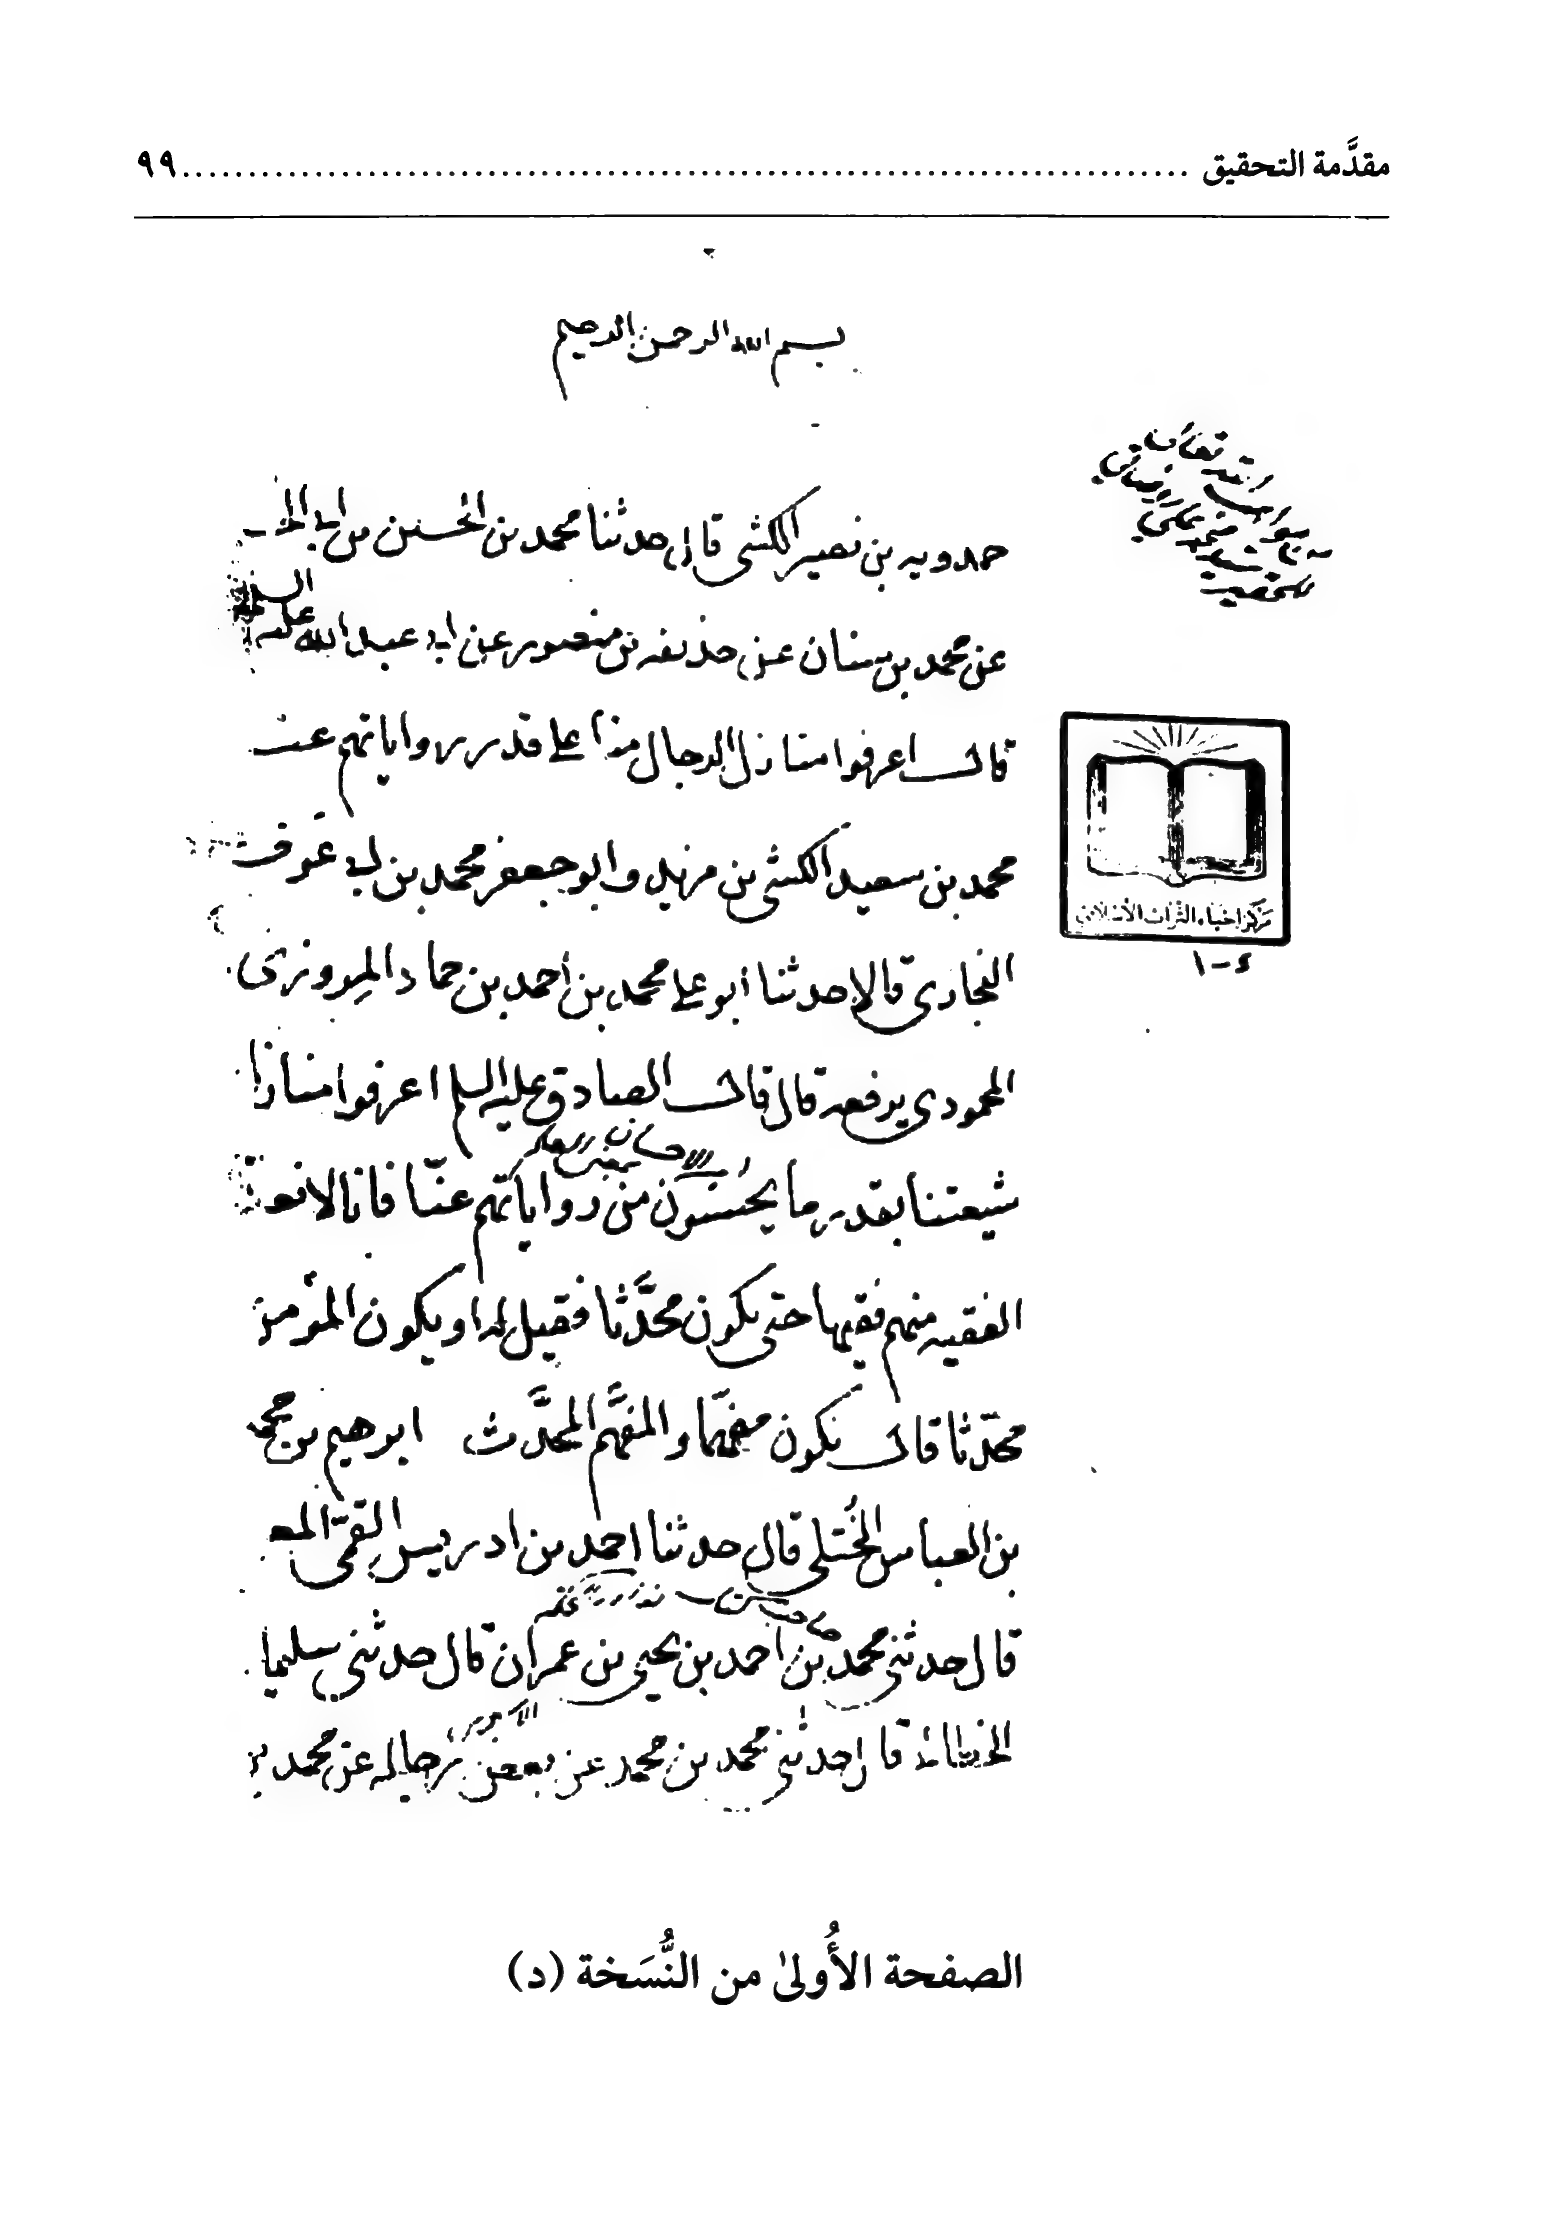 مقدَّمة التحقيق ........................................ ٩٩
بسم الله الرحمن الرحيم
حمدويه بن نصير الكشى قال حدثنا محمد بن الحسين بن ابى الخ
عن محمد بن سنان عن حذيفه بن منصور عن ابى عبد الله عليه السلم
قال اعرفوا منازل الرجال منا على قدر رواياتهم عنا
محمد بن سعيد الكشى بن مزيد وابو جعفر محمد بن ابى عوف
البخارى قالا حدثنا ابو على محمد بن أحمد بن حماد المروزى
المحمودى يرفعه قال قال الصادق عليه السلم اعرفوا منازل
شيعتنا بقدر ما يحسنون من رواياتهم عنّا فانا لا نعد
الفقيه منهم فقيها حتى يكون محدَّثا فقيل له او يكون المؤمن
محدّثا قال يكون مفهّما والمفهَّم المحدَّث ابرهيم بن محمد
بن العباس الخُتلى قال حدثنا احمد بن ادريس القمّى المع
قال حدثنى محمد بن احمد بن يحيى بن عمران قال حدثنى سليما
الخطابى قال حدثنى محمد بن محمد عن بعض رجاله عن محمد بن
مركز إحياء التراث الإسلامي
الصفحة الأُولىٰ من النُّسَخة (د)